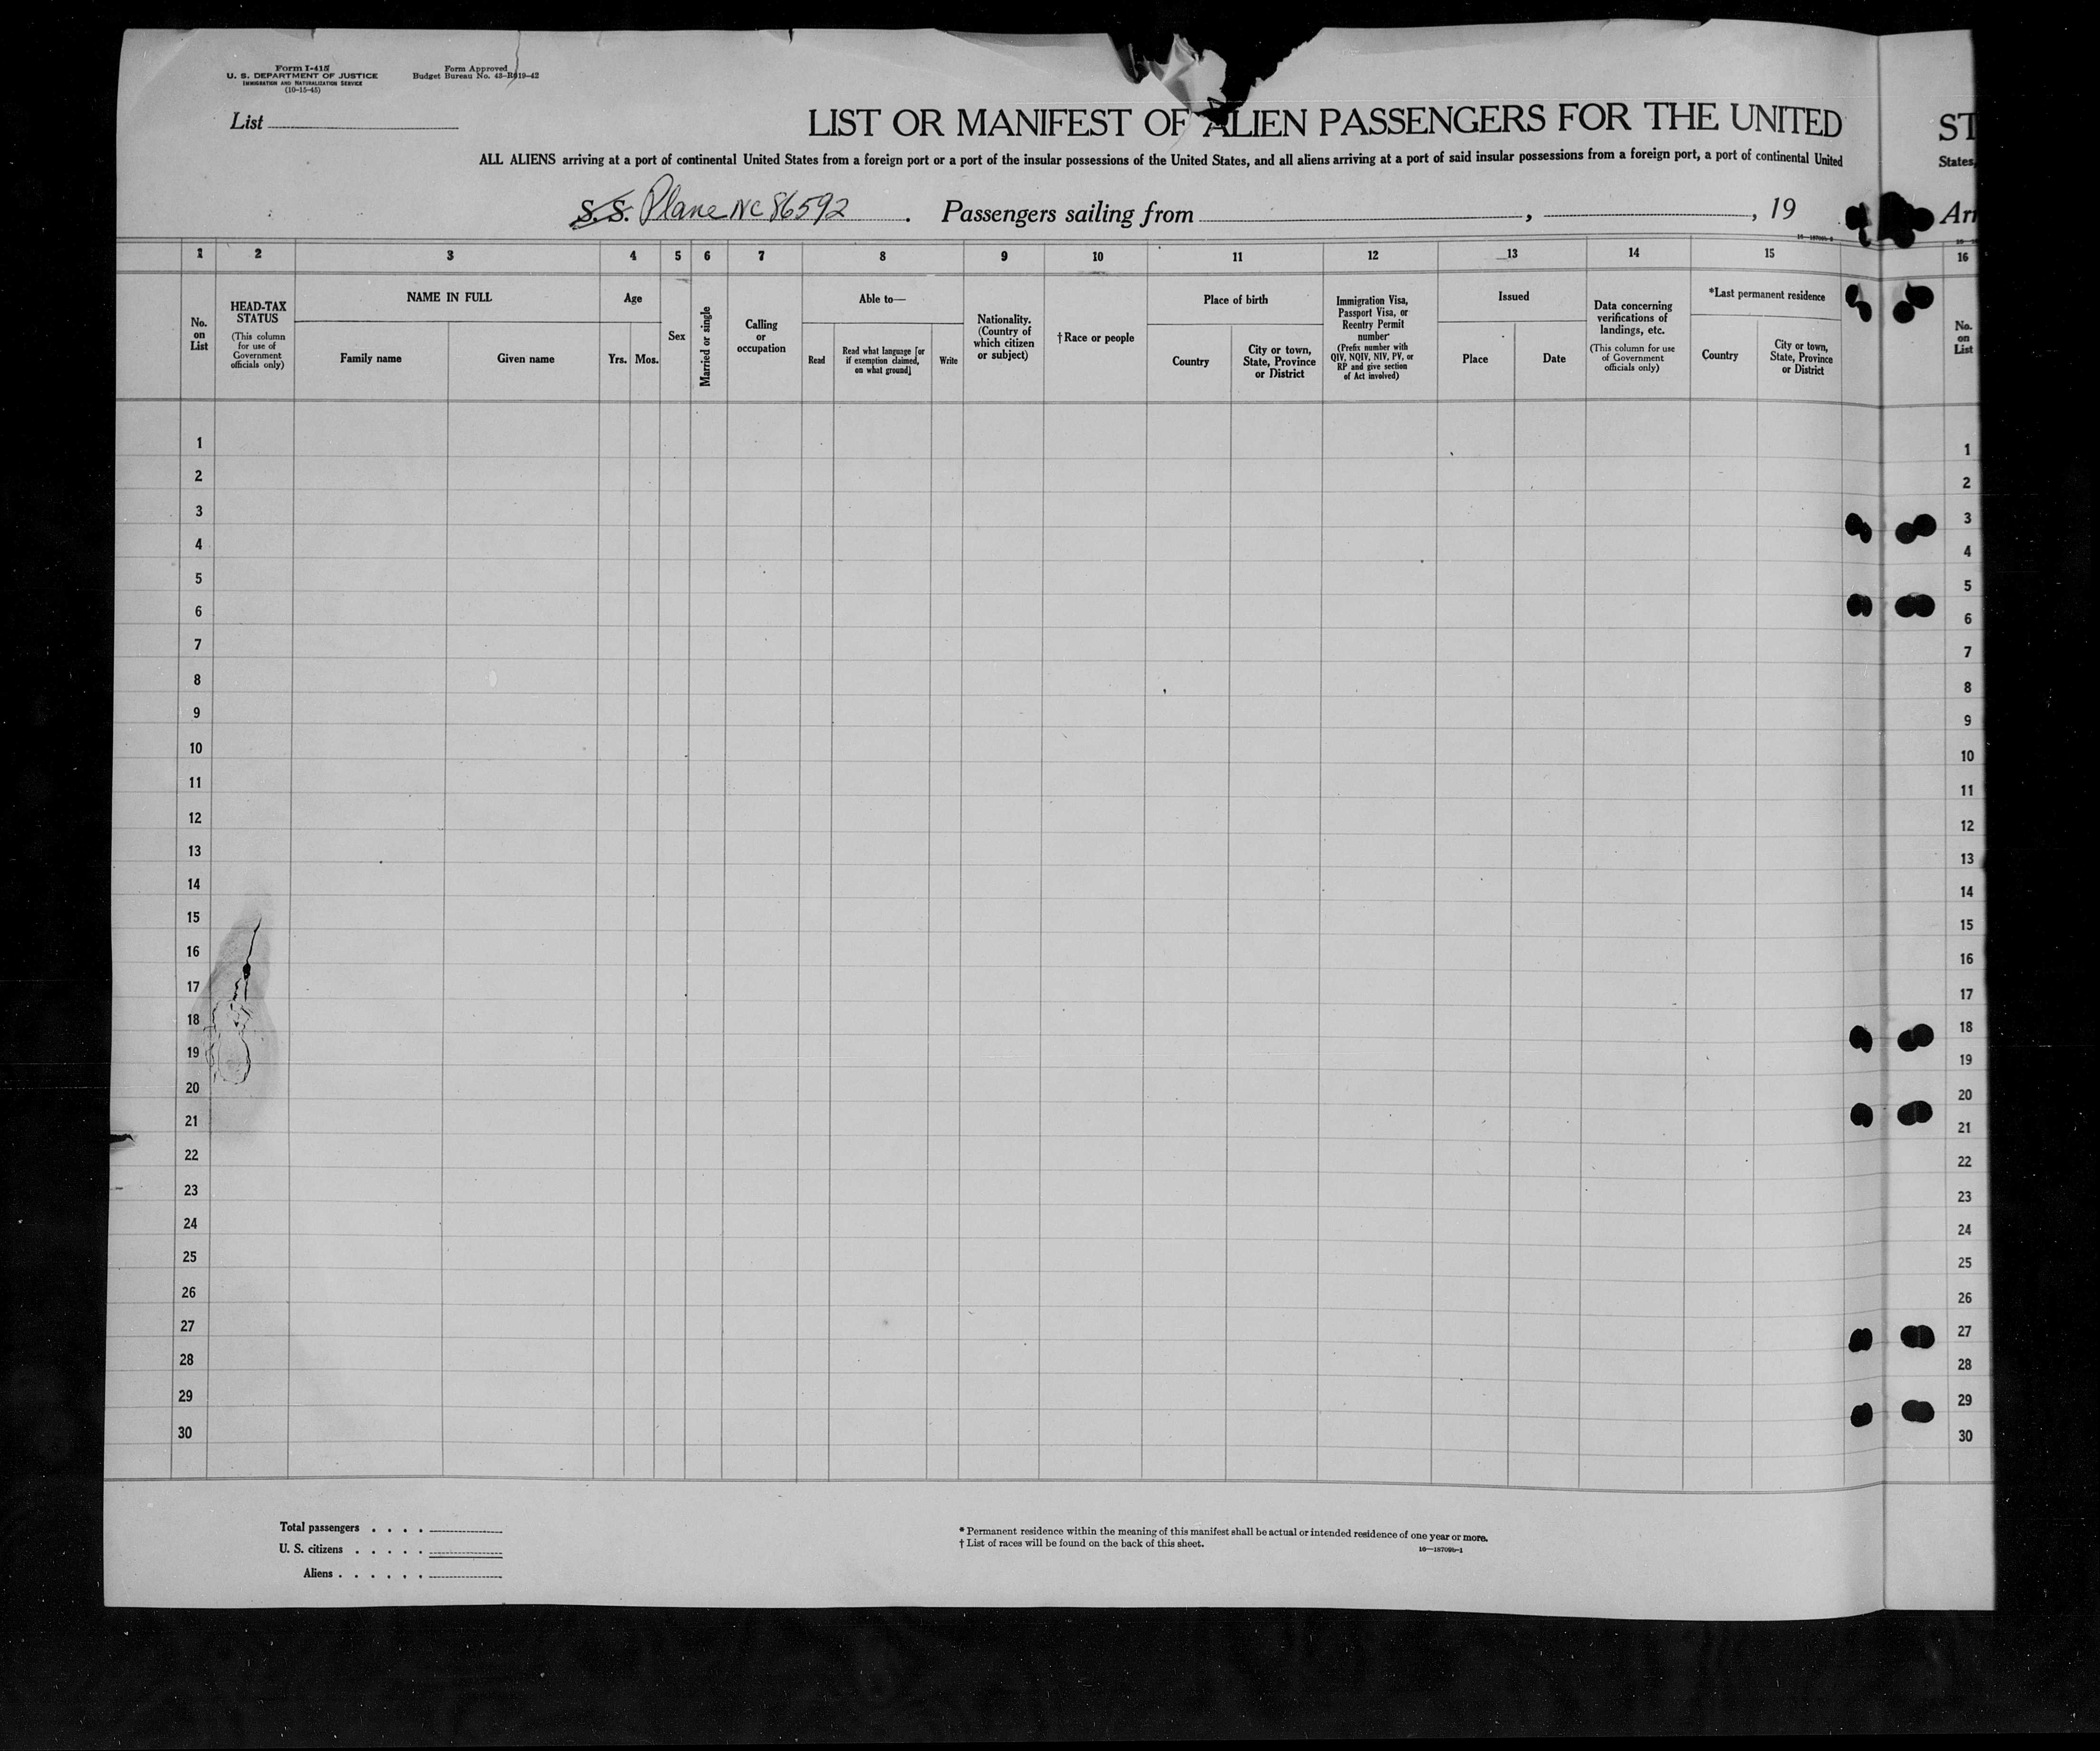 Form I-415
U. S. DEPARTMENT OF JUSTICE
IMMIGRATION AND NATURALIZATION SERVICE
(10-15-45)
Form Approved
Budget Bureau No. 43-R019-42
List
LIST OR MANIFEST OF ALIEN PASSENGERS FOR THE UNITED
ST
ALL ALIENS arriving at a port of continental United States from a foreign port or a port of the insular possessions of the United States, and all aliens arriving at a port of said insular possessions from a foreign port, a port of continental United
States,
S.S. Plane NC 86592. Passengers sailing from , , 19
Arr
1 2 3 4 5 6 7 8 9 10 11 12 13 14 15 16
No. on List
HEAD-TAX STATUS
(This column for use of Government officials only)
NAME IN FULL
Family name
Given name
Age
Yrs. Mos.
Sex
Married or single
Calling or occupation
Able to—
Read
Read what language [or if exemption claimed, on what ground]
Write
Nationality. (Country of which citizen or subject)
†Race or people
Place of birth
Country
City or town, State, Province or District
Immigration Visa, Passport Visa, or Reentry Permit number
(Prefix number with QIV, NQIV, NIV, PV, or RP and give section of Act involved)
Issued
Place
Date
Data concerning verifications of landings, etc.
(This column for use of Government officials only)
*Last permanent residence
Country
City or town, State, Province or District
No. on List
1 1
2 2
3 3
4 4
5 5
6 6
7 7
8 8
9 9
10 10
11 11
12 12
13 13
14 14
15 15
16 16
17 17
18 18
19 19
20 20
21 21
22 22
23 23
24 24
25 25
26 26
27 27
28 28
29 29
30 30
Total passengers . . . .
U. S. citizens . . . . .
Aliens . . . . . .
* Permanent residence within the meaning of this manifest shall be actual or intended residence of one year or more.
† List of races will be found on the back of this sheet.
16—18709b-1